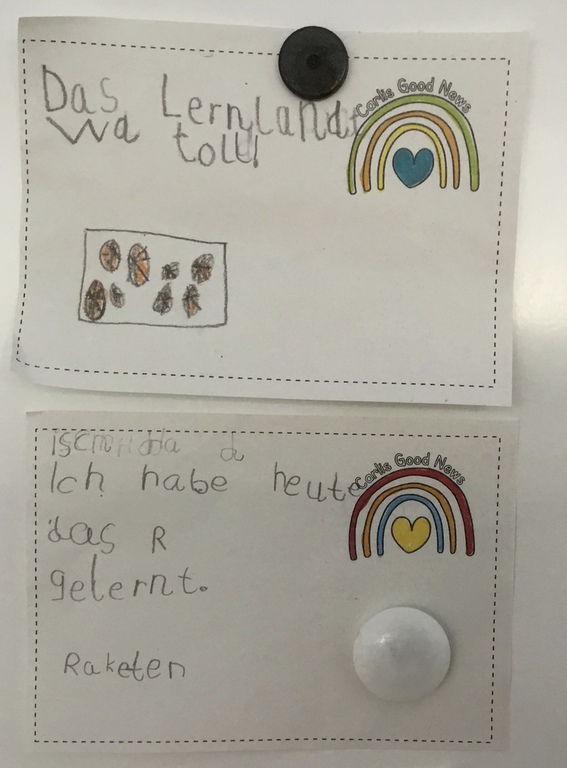 Carlis Good News
Das Lernland
wa toll!
Carlis Good News
Ich habe heute
das R
gelernt.
Raketen